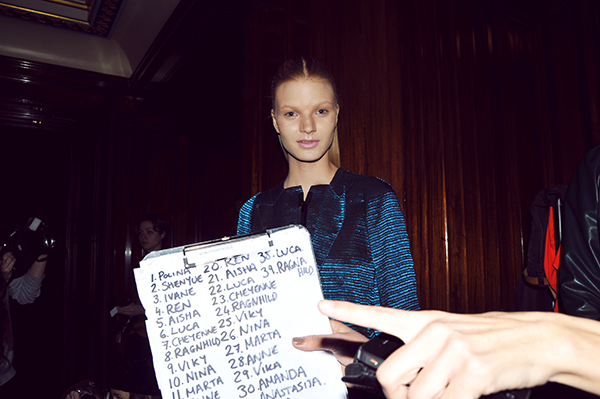 1. POLINA
2. SHENYUE
3. IVANE
4. REN
5. AISHA
6. LUCA
7. CHEYENNE
8. RAGNHILD
9. VIKY
10. NINA
11. MARTA
20. REN
21. AISHA
22. LUCA
23. CHEYENNE
24. RAGNHILD
25. VIKY
26 NINA
27. MARTA
28. ANNE
29. VIKA
30. AMANDA
ANASTASIJA.
38. LUCA
39. RAGNA
HILD